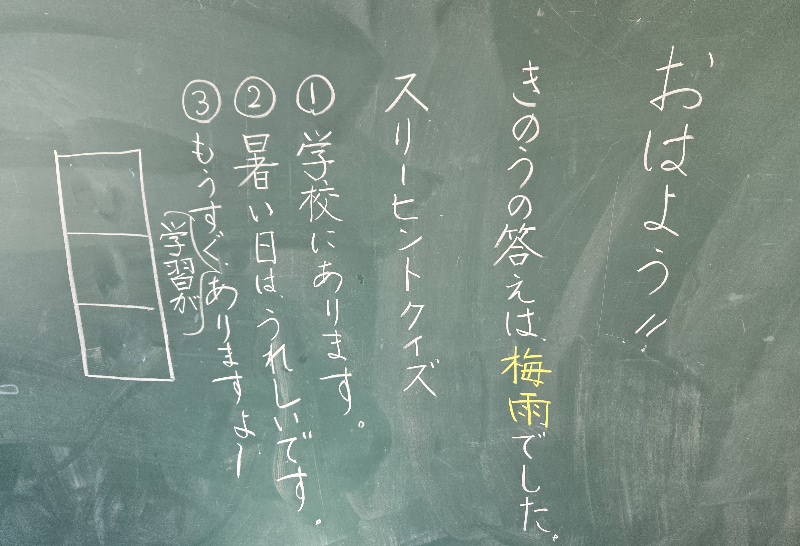 おはよう〃
きのうの答えは、梅雨でした。
スリーヒントクイズ
①学校にあります。
②暑い日は、うれしいです。
③もうすぐ、ありますよー
(学習が)